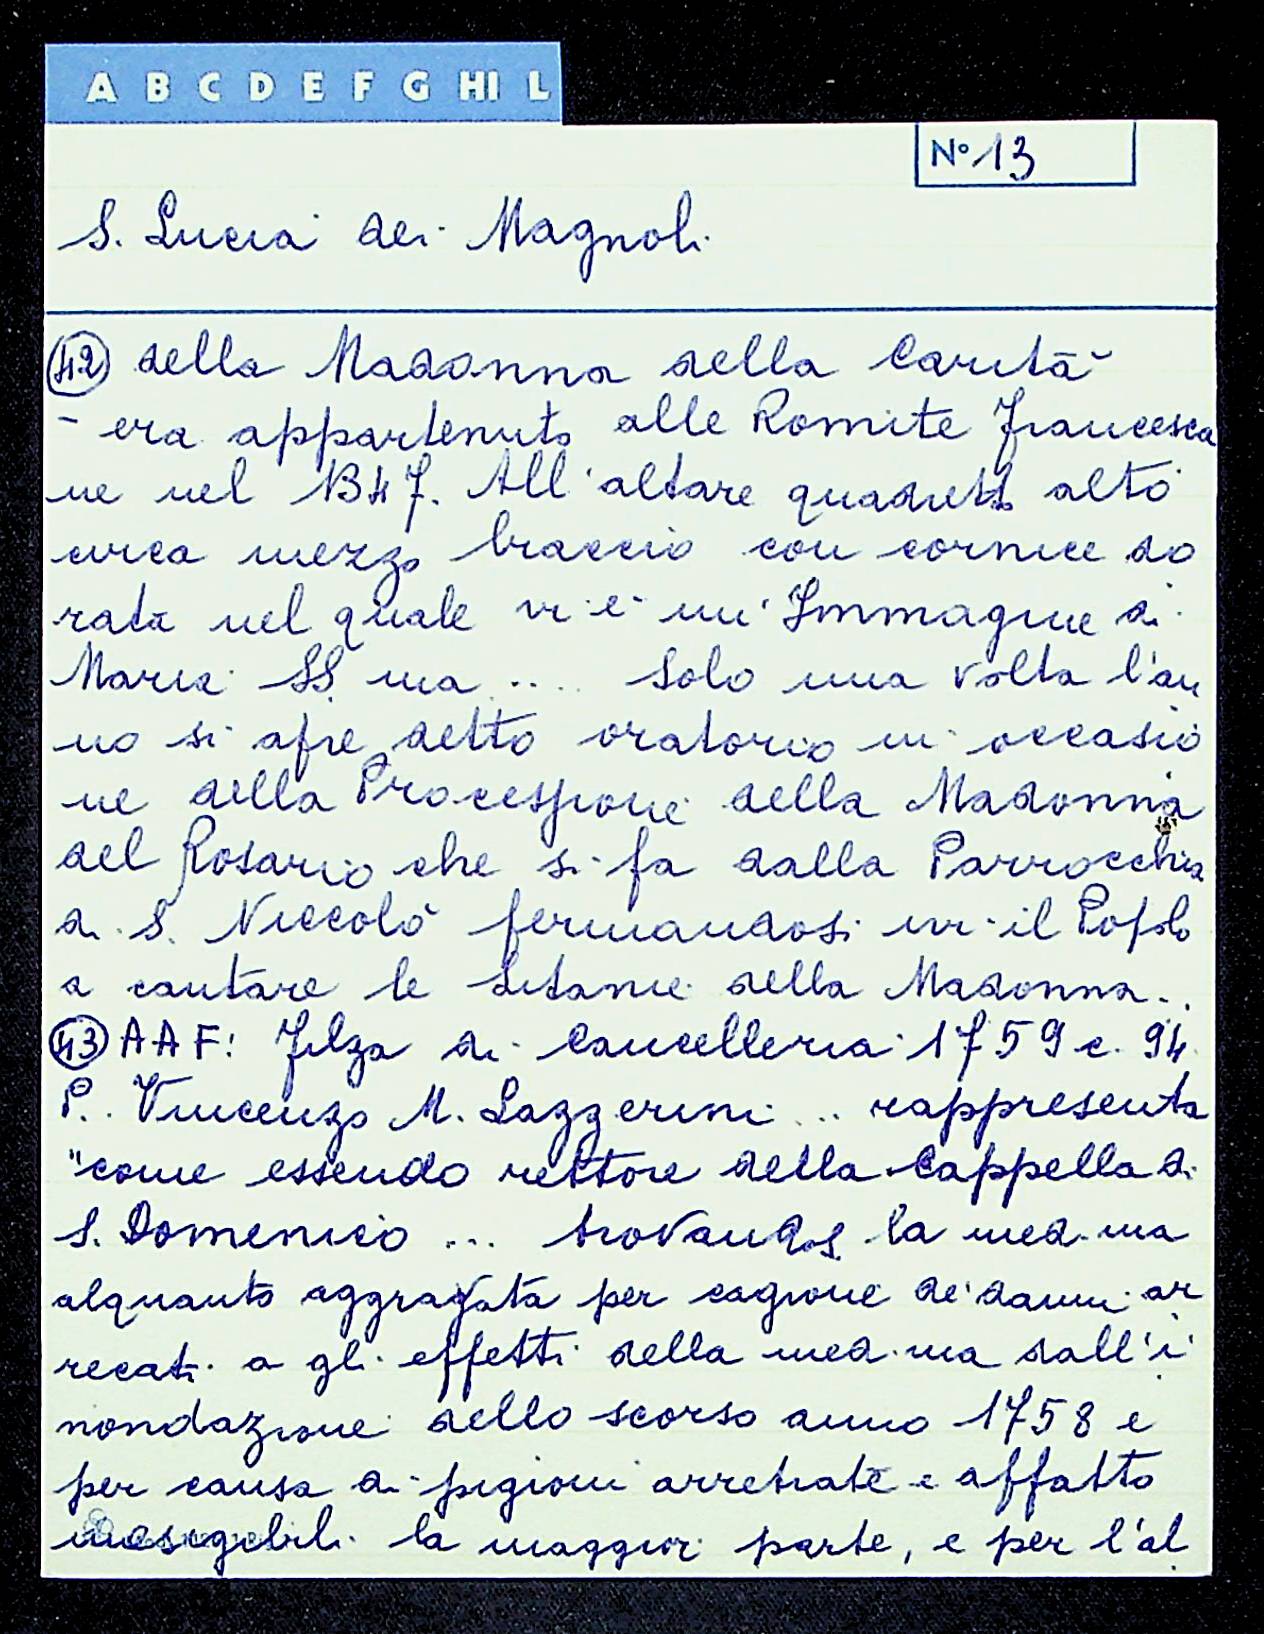 A B C D E F G HI L
N° 13
S. Lucia dei Magnoli
42 della Madonna della Carità
- era appartenuto alle Romite Francesca
ne nel 1347. All'altare quadretto alto
circa mezzo braccio con cornice do
rata nel quale vi è un'Immagine di
Maria SS. ma .... Solo una volta l'an
no si apre detto oratorio in occasio
ne della Processione della Madonna
del Rosario che si fa dalla Parrocchia
di S. Niccolò fermandosi ivi il Popolo
a cantare le Litanie della Madonna..
43 AAF: Filza di Cancelleria 1759 c. 94
P. Vincenzo M. Lazzerini ... rappresenta
"come essendo rettore della Cappella di
S. Domenico ... trovandosi la med.ma
alquanto aggravata per cagione de' danni ar
recati a gli effetti della med.ma dall'i
nondazione dello scorso anno 1758 e
per causa di pigioni arretrate e affatto
inesigibili la maggior parte, e per l'al